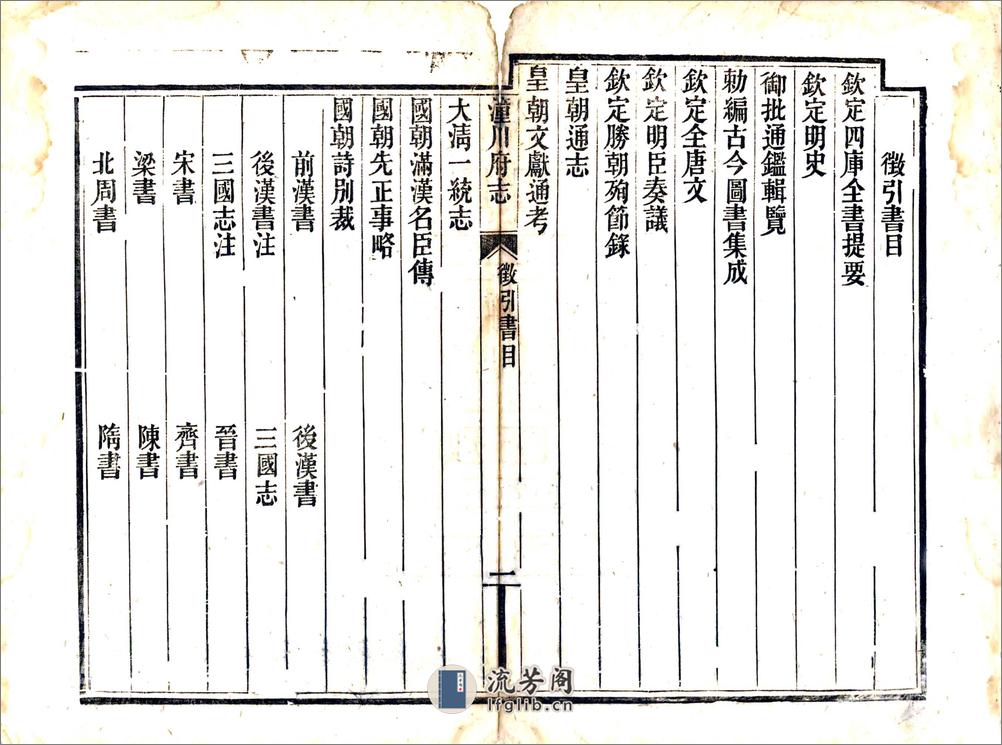 徵引書目
欽定四庫全書提要
欽定明史
御批通鑑輯覽
勅編古今圖書集成
欽定全唐文
欽定明臣奏議
欽定勝朝殉節錄
皇朝通志
皇朝文獻通考
潼川府志
徵引書目
二
大清一統志
國朝滿漢名臣傳
國朝先正事略
國朝詩別裁
前漢書
後漢書
後漢書注
三國志
三國志注
晉書
宋書
齊書
梁書
陳書
北周書
隋書
流芳阁
lfglib.cn